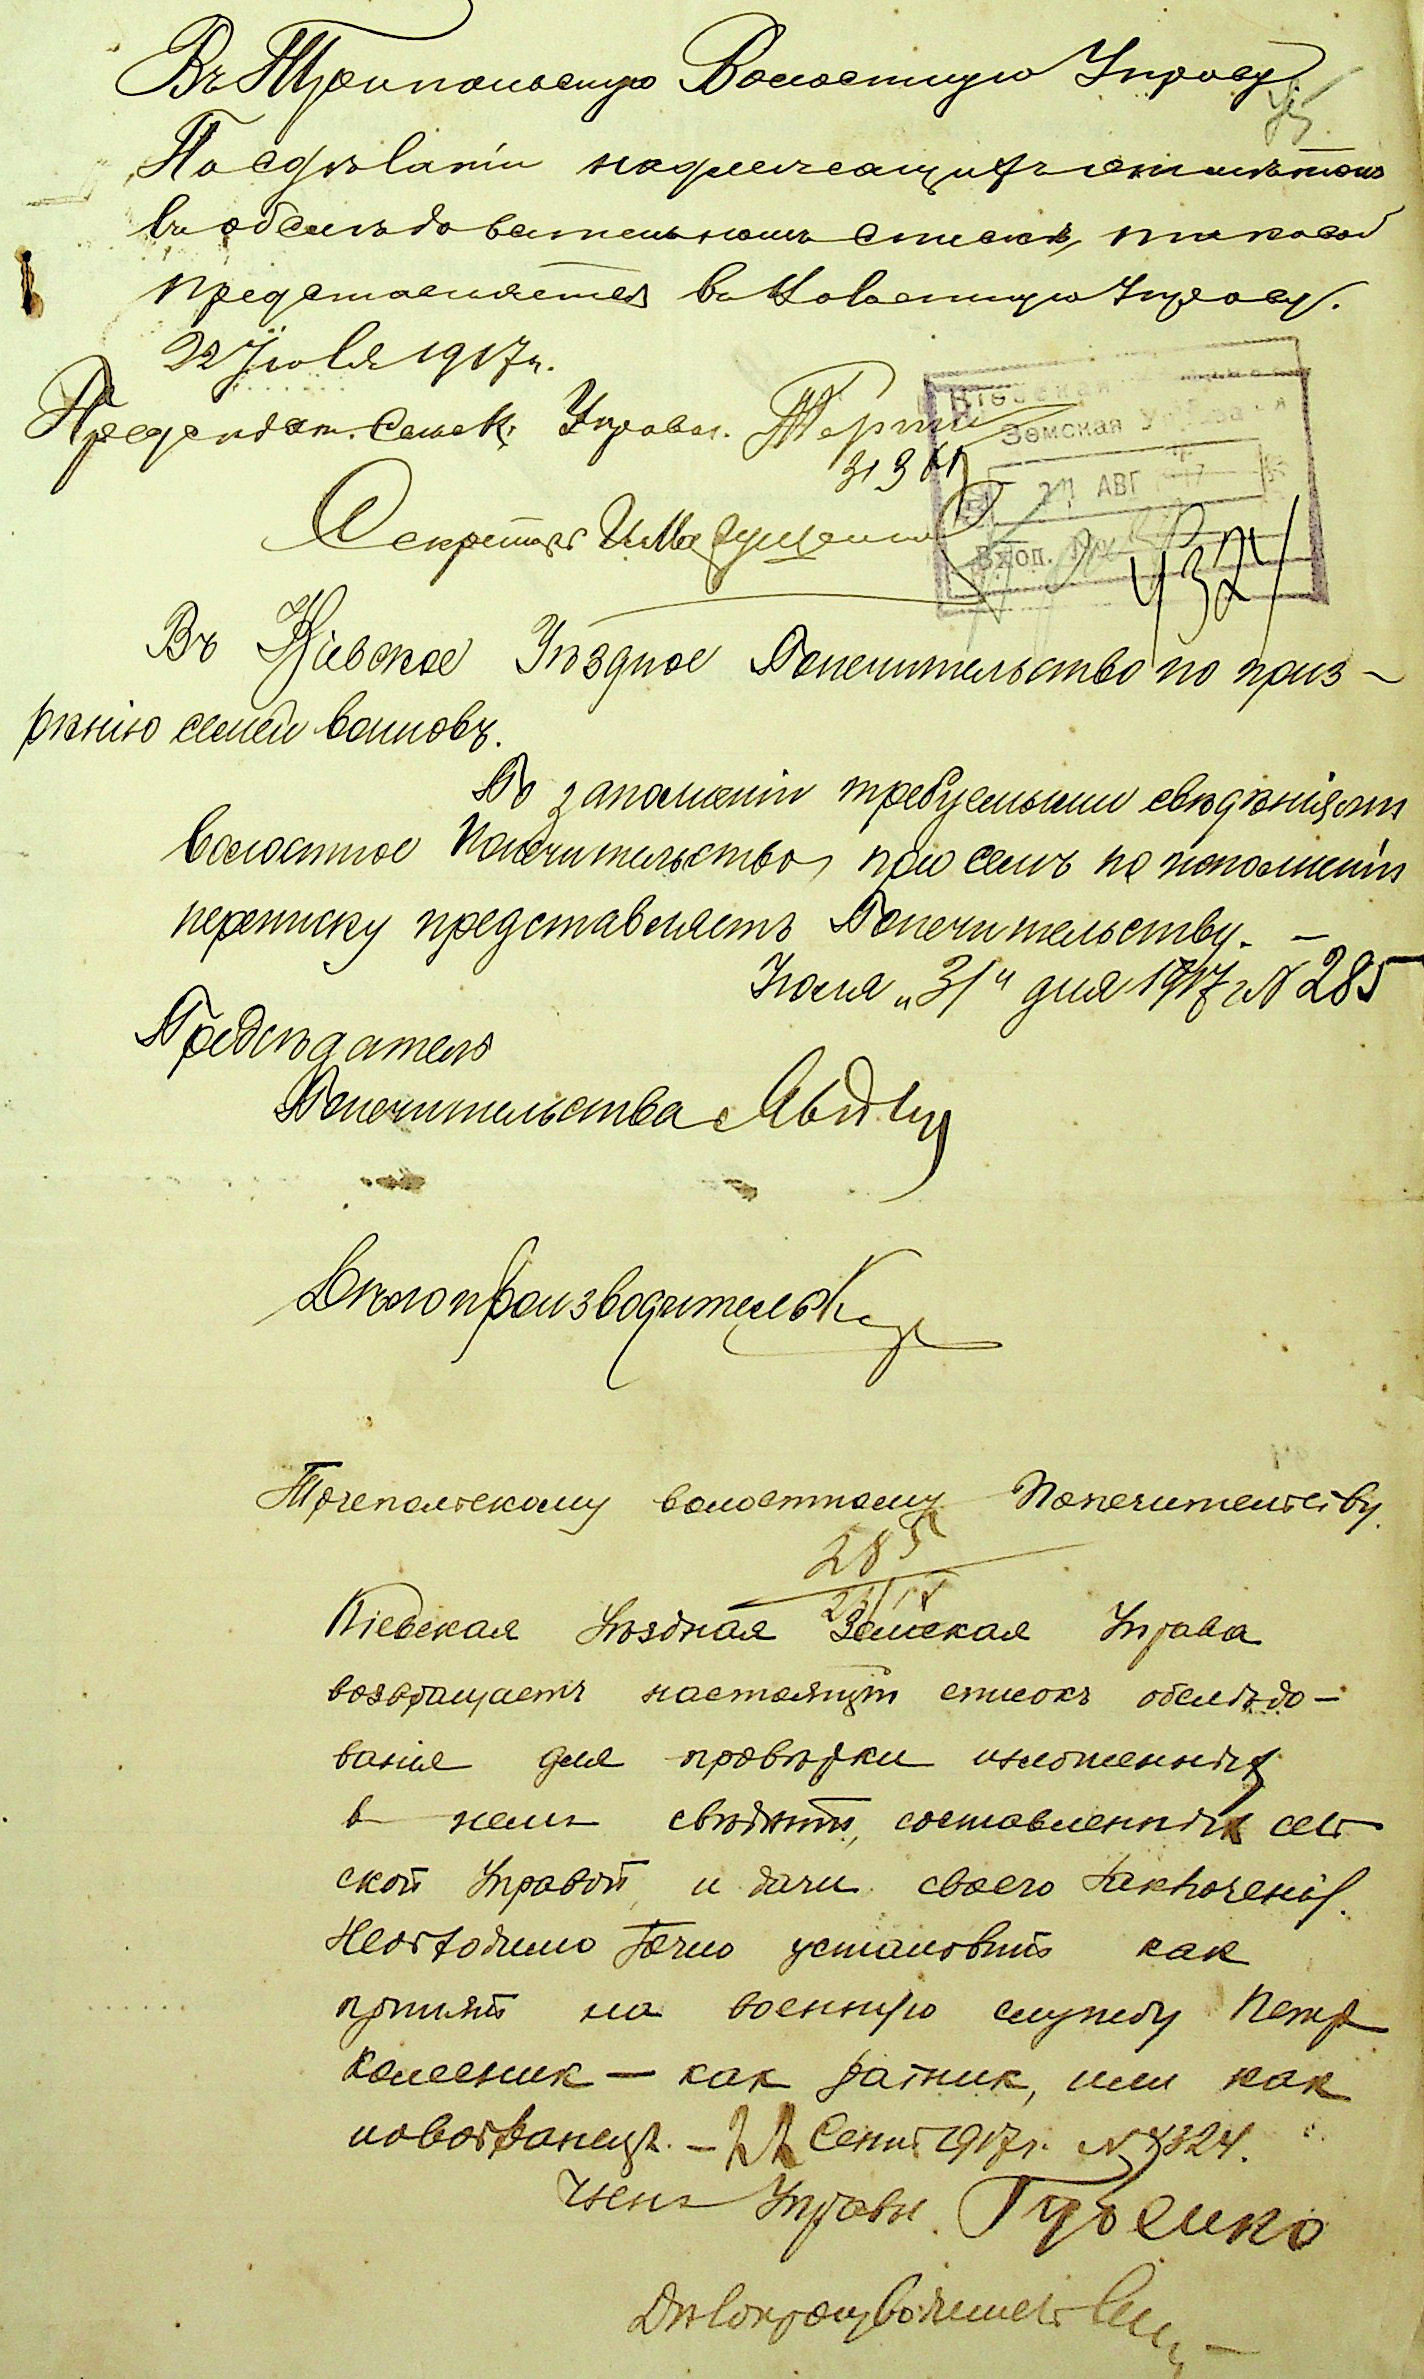 Въ Трипольскую Волостную Управу
По сдѣланіи надлежащихъ отмѣтокъ
въ обслѣдовательномъ спискѣ, таковой
представляется въ Волостную Управу.
22 Іюля 1917 г.
Председат. Сельск. Управы.
3191
Секретарь
Кіевская
Земская Управа
АВГ
Вход. №
4324
Въ Кіевское Уѣздное Попечительство по приз-
рѣнію семей воиновъ.
По заполненіи требуемыми свѣдѣніями
волостное Попечительство, при семъ по исполненіи
переписку представляетъ Попечительству. —
Іюля „31" дня 1917 г. № 285
Предсѣдатель
Попечительства
Дѣлопроизводитель
Трипольскому волостному Попечительству.
285
Кіевская Уѣздная Земская Управа
возвращаетъ настоящій списокъ обслѣдо-
ванія для провѣрки изложенныхъ
в нем свѣдѣній, составленных сель
ской Управой, и дачи своего заключенія.
Необходимо точно установить как
принят на военную службу Петр
Колесник — как ратник, или как
новобранец. — 22 Сент. 1917 г. № 4324.
Член Управы
Дѣлопроизводитель